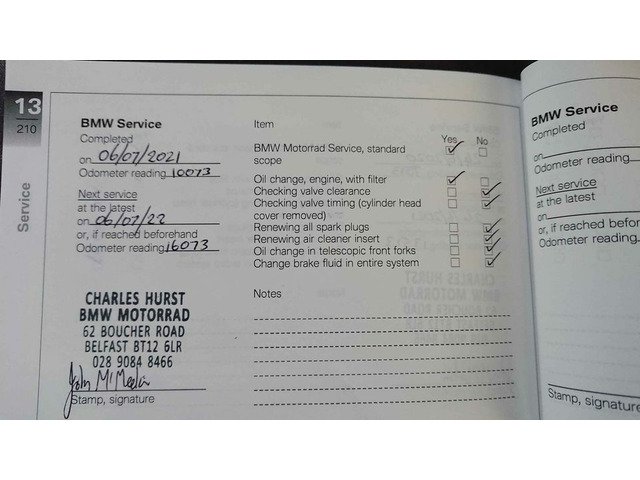 13
210
Service
BMW Service
Completed
on 06/07/2021
Odometer reading 10073
Next service
at the latest
on 06/07/22
or, if reached beforehand
Odometer reading 16073
CHARLES HURST
BMW MOTORRAD
62 BOUCHER ROAD
BELFAST BT12 6LR
028 9084 8466
John
Stamp, signature
Item
Yes No
BMW Motorrad Service, standard
scope
Oil change, engine, with filter
Checking valve clearance
Checking valve timing (cylinder head
cover removed)
Renewing all spark plugs
Renewing air cleaner insert
Oil change in telescopic front forks
Change brake fluid in entire system
Notes
BMW Service
Completed
on
Odometer reading
Next service
at the latest
on
or, if reached
Odometer reading
Stamp, signature